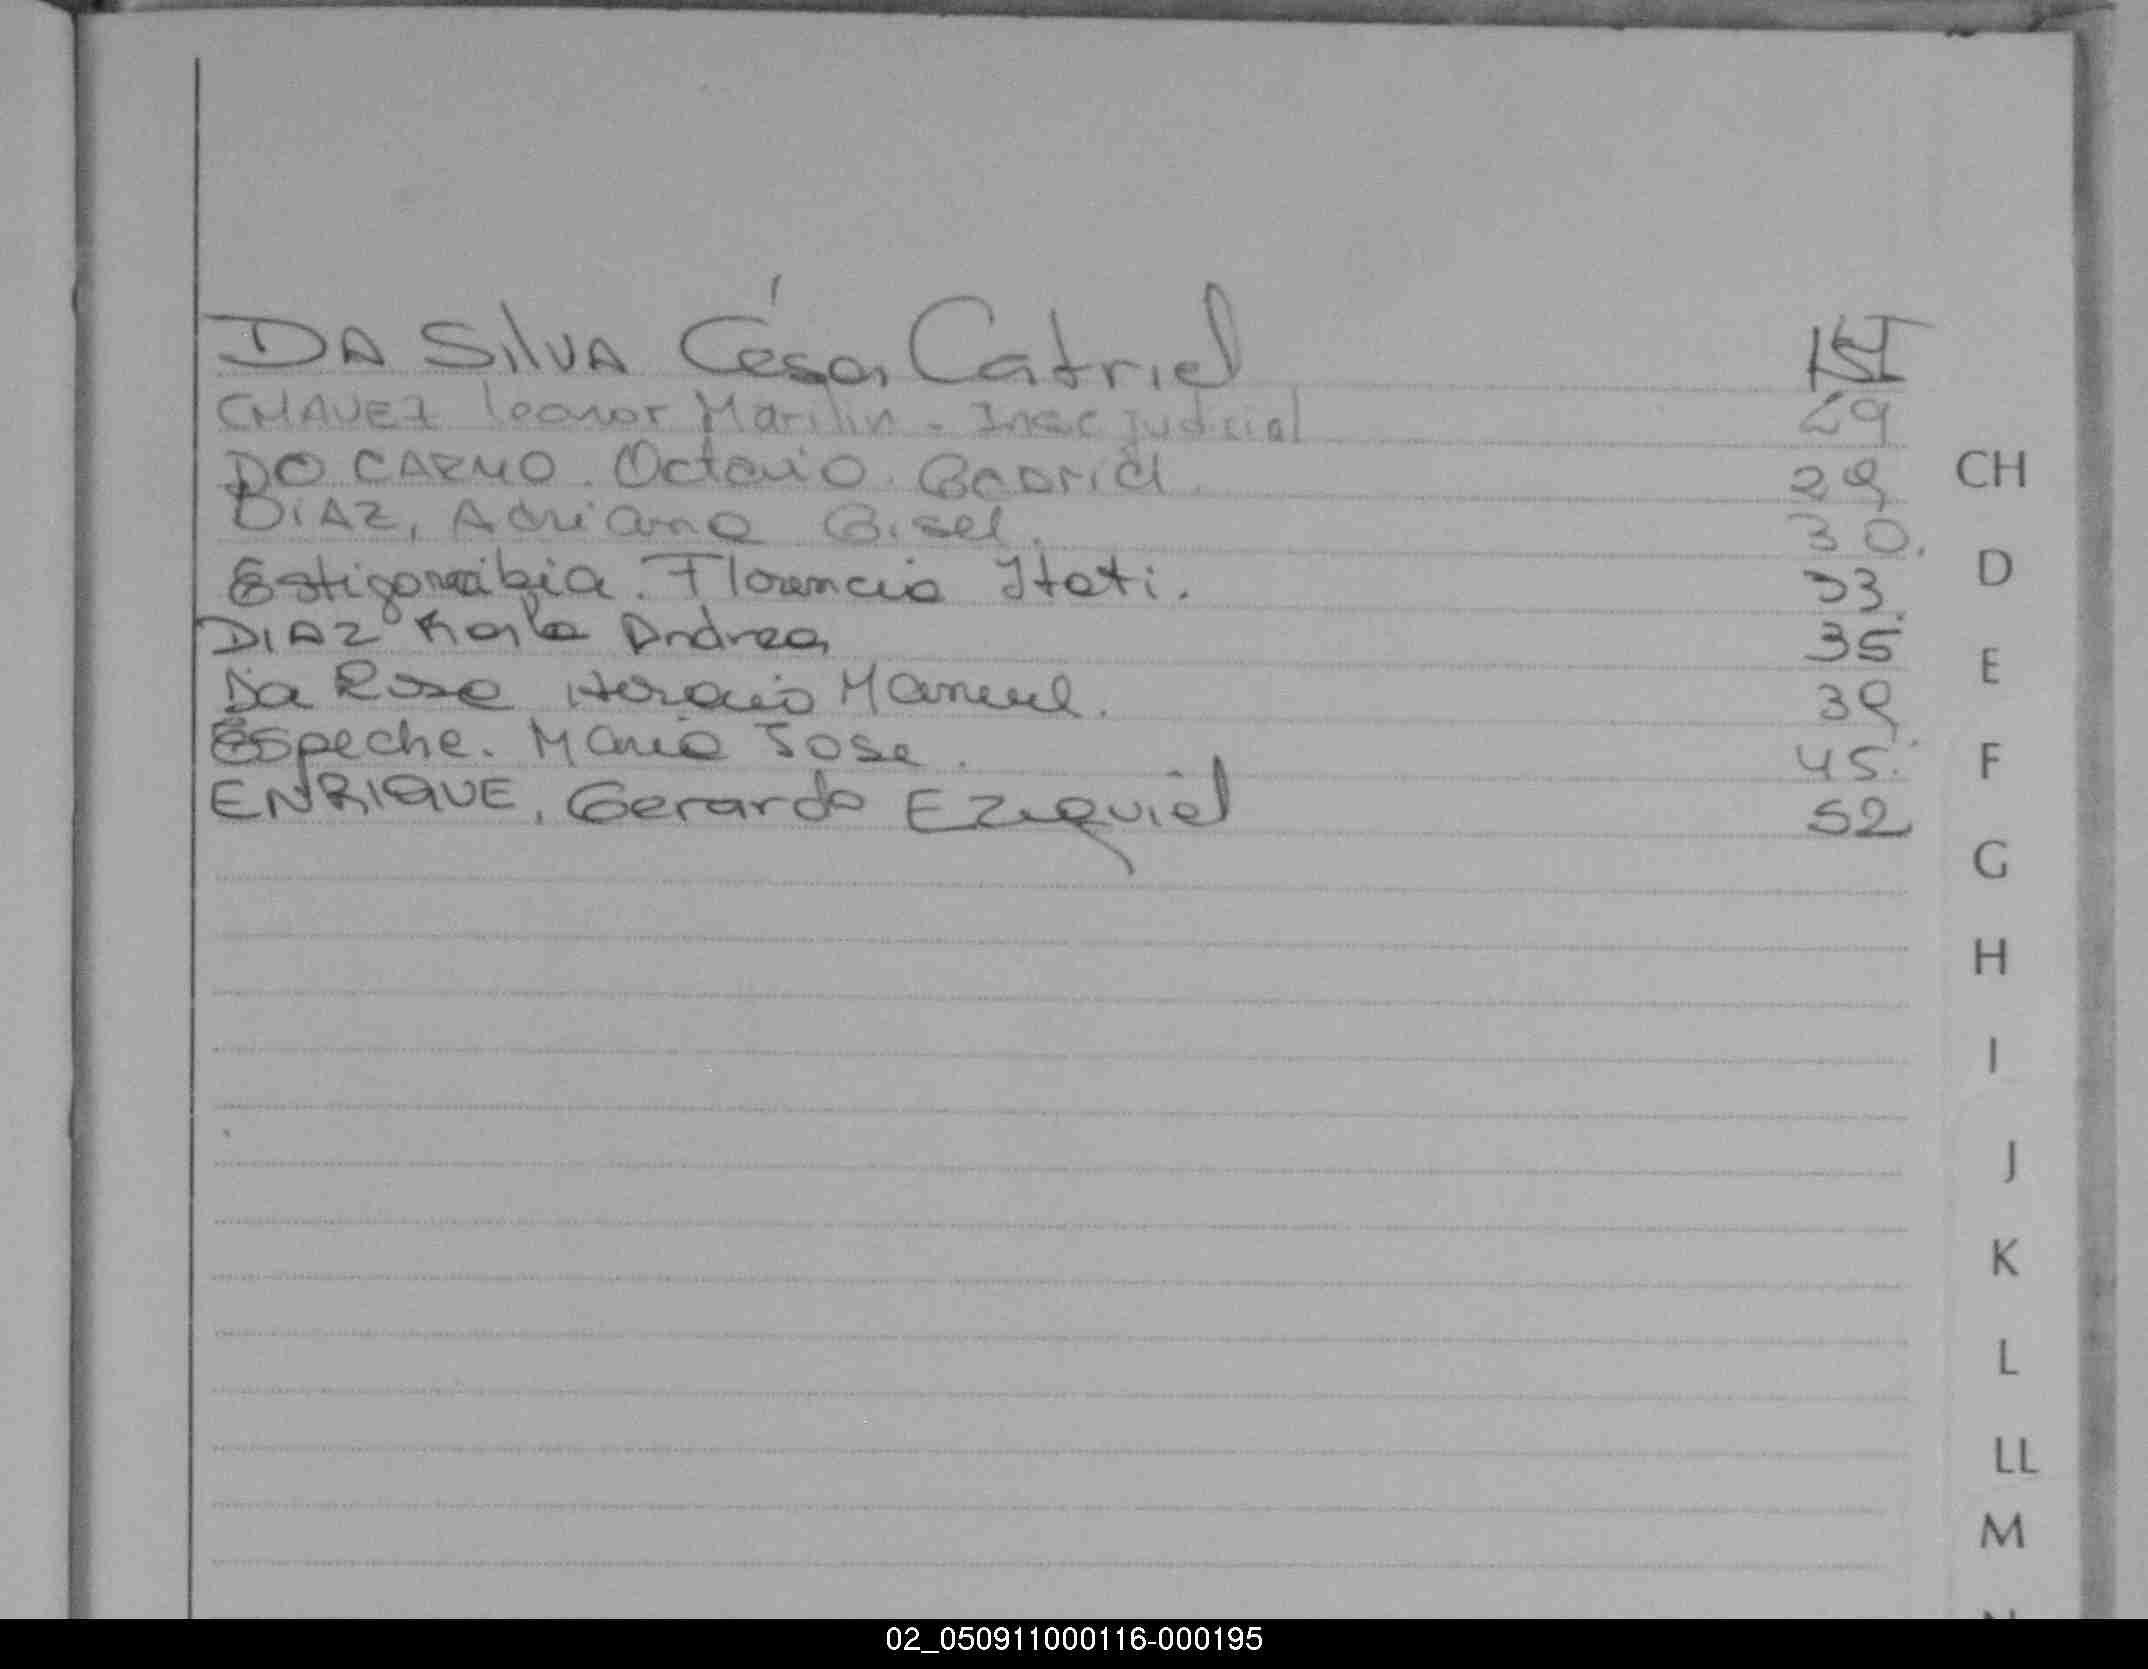 DA SilVA César Catriel
CHAVEZ leonor Marilin - Insc judicial 29
DO CARMO. Octavio. Gabriel. 29
DIAZ, Adriana Gisel. 30.
Estigarribia. Florencia Itati. 33.
DIAZ Karla Andrea 35
Da Rosa Horacio Manuel. 39
Espeche. Maria Jose. 45.
ENRIQUE, Gerardo Ezequiel 52
CH
D
E
F
G
H
I
J
K
L
LL
M
02_050911000116-000195